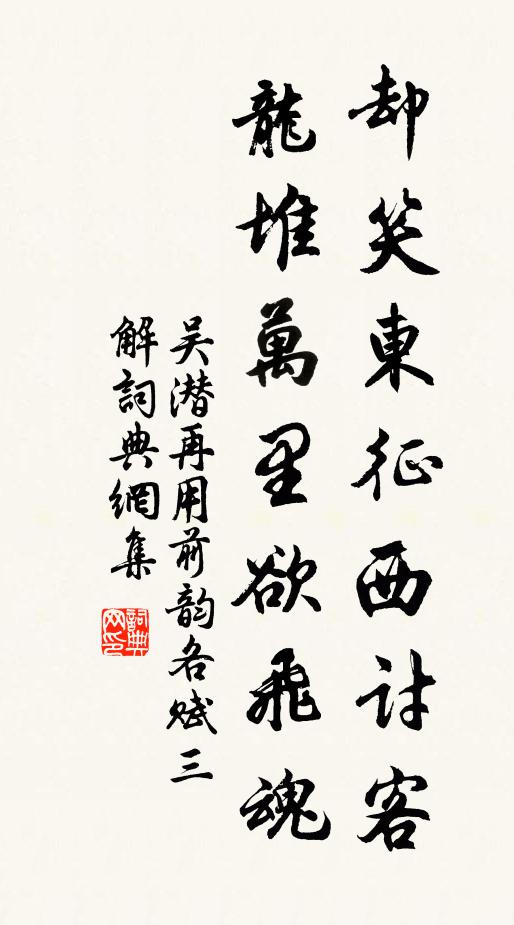 却笑東征西討客
龍堆萬里欲飛魂
吴潜再用前韵各赋三
解詞典網集
詞典
网印